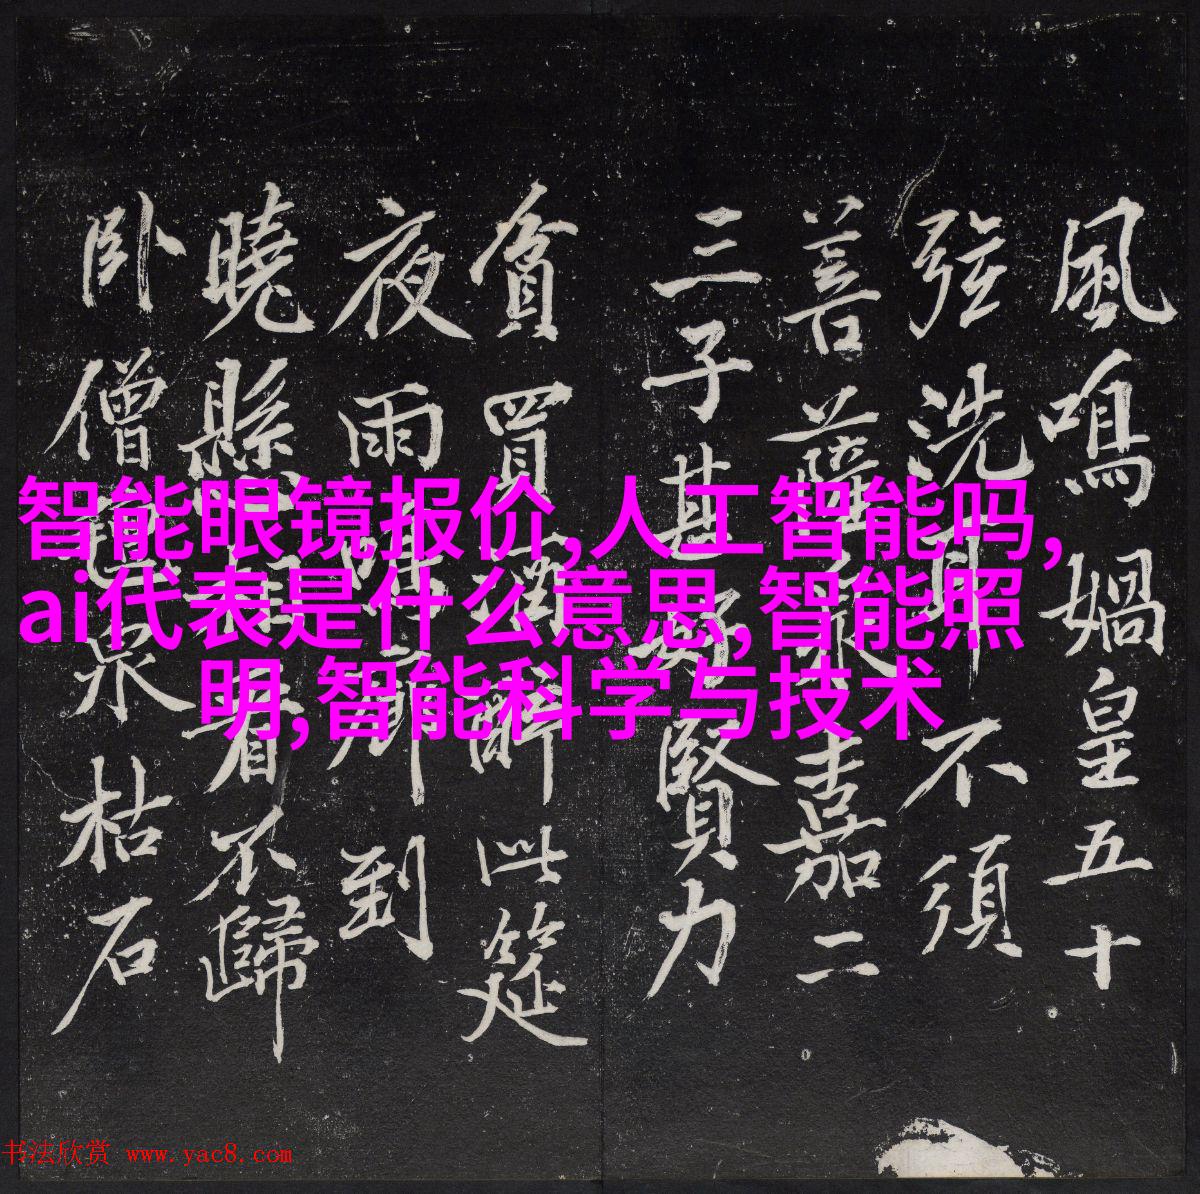 風鳴媧皇五十
弦洗耳不須
菩薩泉嘉二
三子甚好賢力
貧買醉此筵
夜雨到
曉懸看不歸
臥僧泉枯石
智能眼镜报价,人工智能吗,
ai代表是什么意思,智能照
明,智能科学与技术
书法欣赏 www.yac8.com